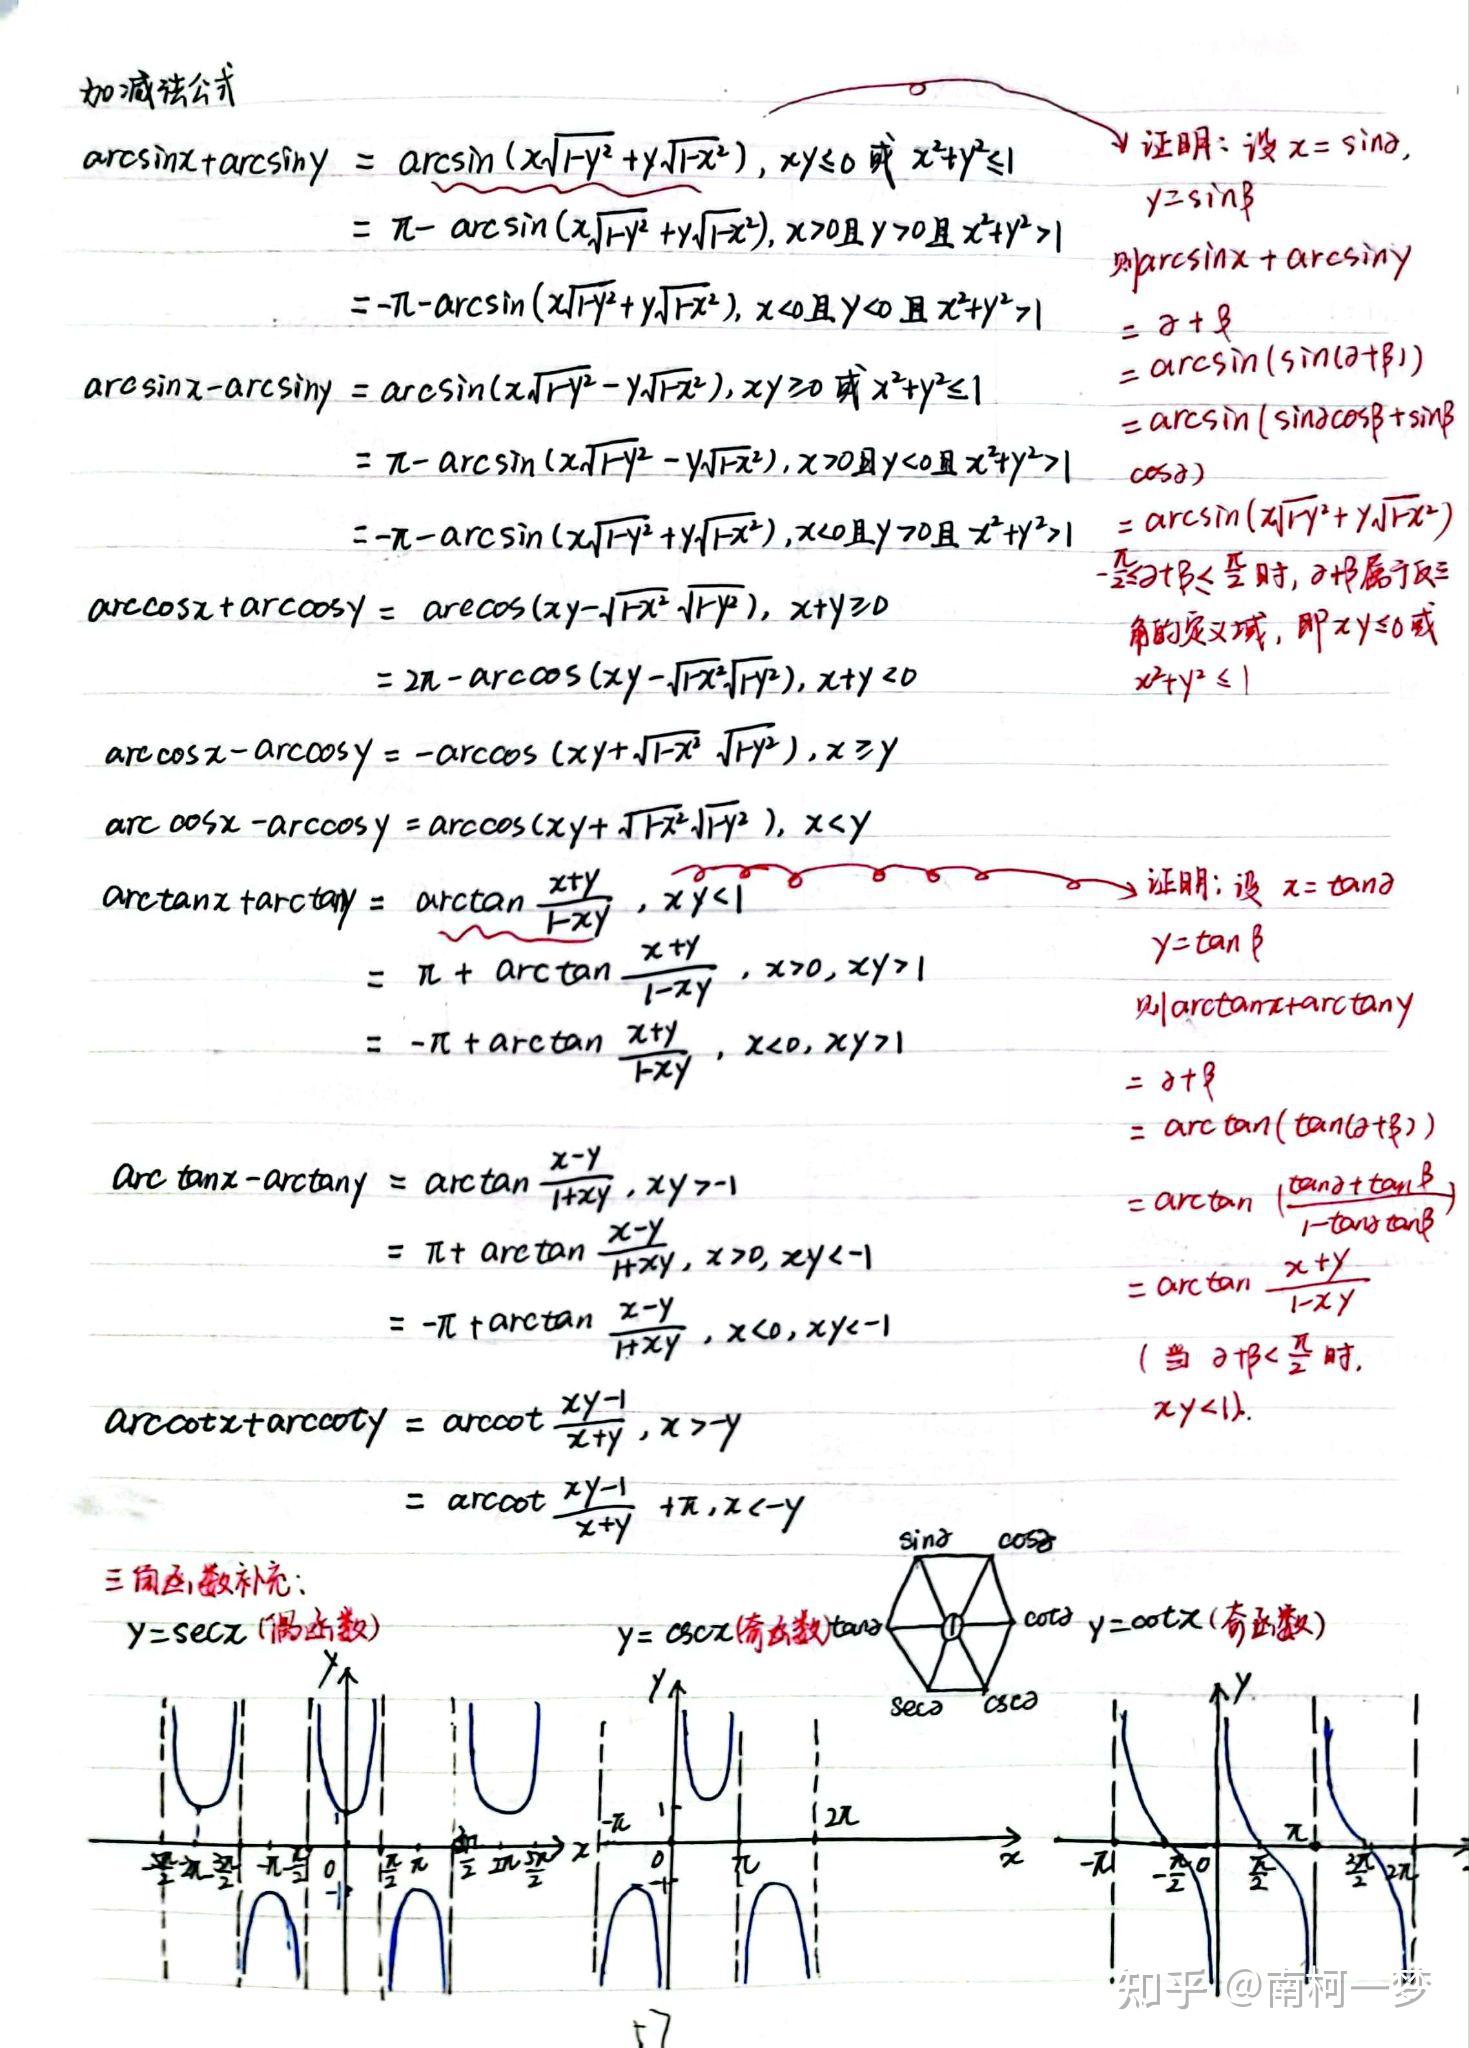 加减法公式
arcsinx+arcsiny = arcsin(x√1-y² + y√1-x²), xy≤0 或 x²+y²≤1
= π- arcsin(x√1-y² + y√1-x²), x>0且y>0且 x²+y²>1
= -π-arcsin(x√1-y² + y√1-x²), x<0且y<0且 x²+y²>1
arcsinx-arcsiny = arcsin(x√1-y² - y√1-x²), xy≥0 或 x²+y²≤1
= π-arcsin(x√1-y² - y√1-x²), x>0且y<0且 x²+y²>1
= -π-arcsin(x√1-y² + y√1-x²), x<0且y>0且 x²+y²>1
arccosx+arccosy = arccos(xy-√1-x² √1-y²), x+y≥0
= 2π-arccos(xy-√1-x²√1-y²), x+y<0
arccosx-arccosy = -arccos(xy+√1-x² √1-y²), x≥y
arccosx-arccosy = arccos(xy+√1-x²√1-y²), x<y
arctanx+arctany = arctan (x+y)/(1-xy), xy<1
= π + arctan (x+y)/(1-xy), x>0, xy>1
= -π+arctan (x+y)/(1-xy), x<0, xy>1
arctanx-arctany = arctan (x-y)/(1+xy), xy>-1
= π+arctan (x-y)/(1+xy), x>0, xy<-1
= -π+arctan (x-y)/(1+xy), x<0, xy<-1
arccotx+arccoty = arccot (xy-1)/(x+y), x>-y
= arccot (xy-1)/(x+y) +π, x<-y
证明: 设 x=sin∂,
y=sinβ
则arcsinx+arcsiny
= ∂+β
= arcsin(sin(∂+β))
= arcsin(sin∂cosβ+sinβ
cos∂)
= arcsin(x√1-y² + y√1-x²)
-π/2≤∂+β≤π/2时, ∂+β属于反三
角的定义域, 即xy≤0或
x²+y²≤1
证明: 设 x=tan∂
y=tanβ
则arctanx+arctany
= ∂+β
= arctan(tan(∂+β))
= arctan ((tan∂+tanβ)/(1-tan∂tanβ))
= arctan (x+y)/(1-xy)
(当 ∂+β<π/2时,
xy<1).
三角函数补充:
y=secx (偶函数)
y=cscx(奇函数)
sin∂ cos∂
tan∂ 1 cot∂
sec∂ csc∂
y=cotx (奇函数)
y
1
-5π/2 -2π -3π/2 -π -π/2 0 π/2 π 3π/2 2π 5π/2 x
-1
y
1
-π 0 π 2π x
-1
y
-π -π/2 0 π/2 π 3π/2 2π
知乎 @南柯一梦
57